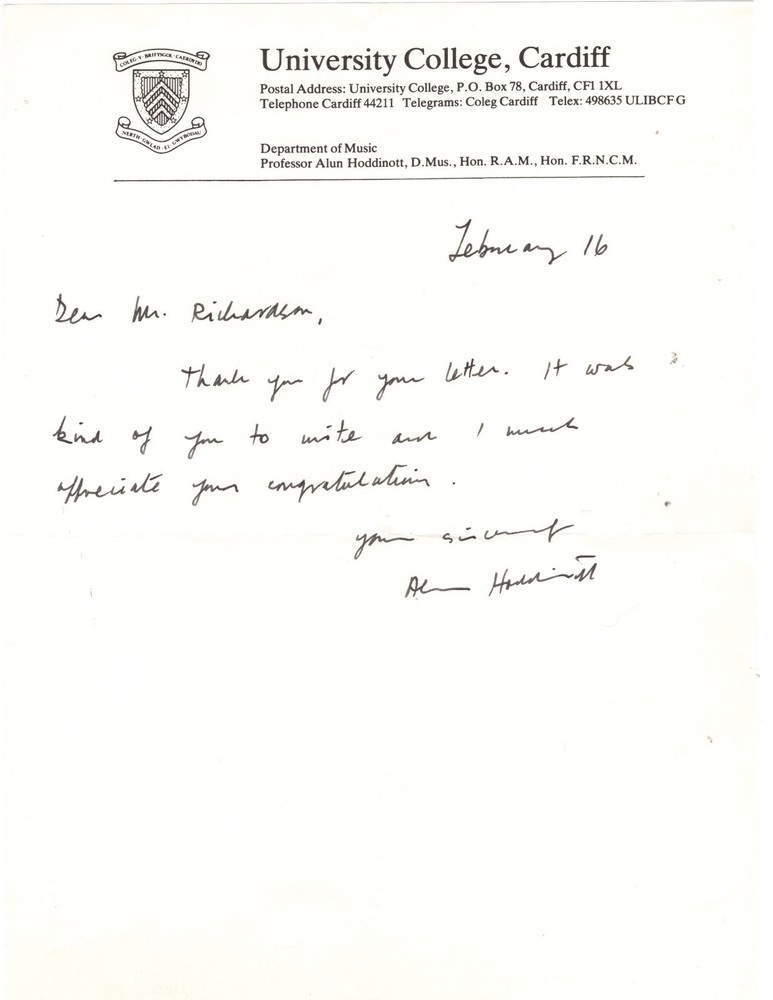 COLEG Y BRIFYSGOL CAERDYDD
NERTH GWLAD EI GWYBODAU
University College, Cardiff
Postal Address: University College, P.O. Box 78, Cardiff, CF1 1XL
Telephone Cardiff 44211 Telegrams: Coleg Cardiff Telex: 498635 ULIBCF G
Department of Music
Professor Alun Hoddinott, D.Mus., Hon. R.A.M., Hon. F.R.N.C.M.
February 16
Dear Mr. Richardson,
Thank you for your letter. It was
kind of you to write and I much
appreciate your congratulations.
Yours sincerely
Alun Hoddinott